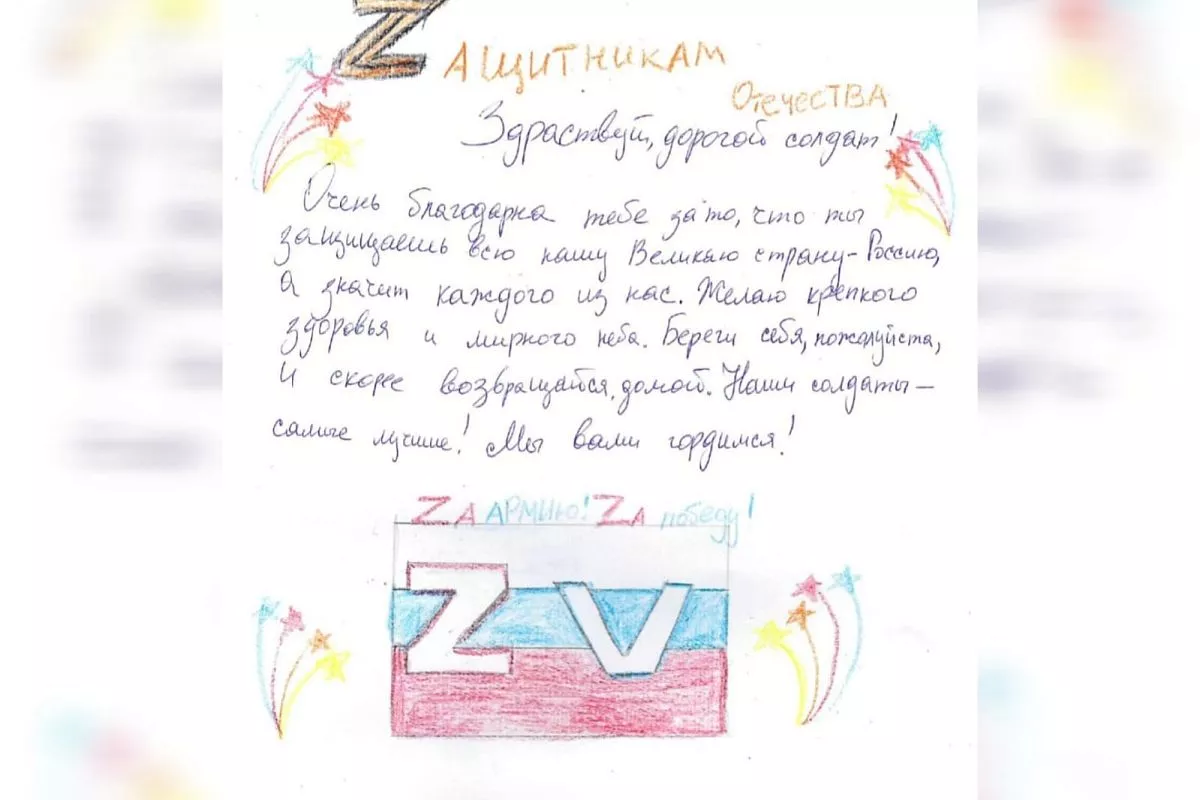 ZАЩИТНИКАМ
ОТЕЧЕСТВА
Здраствуй, дорогой солдат!
Очень благодарна тебе за то, что ты
защищаешь всю нашу Великаю страну - Россию,
А значит каждого из нас. Желаю крепкого
здоровья и мирного неба. Береги себя, пожалуйста,
И скорее возвращайся, домой. Наши солдаты -
самые лучшие! Мы вами гордимся!
ZА АРМИЮ! ZА победу!
Z V